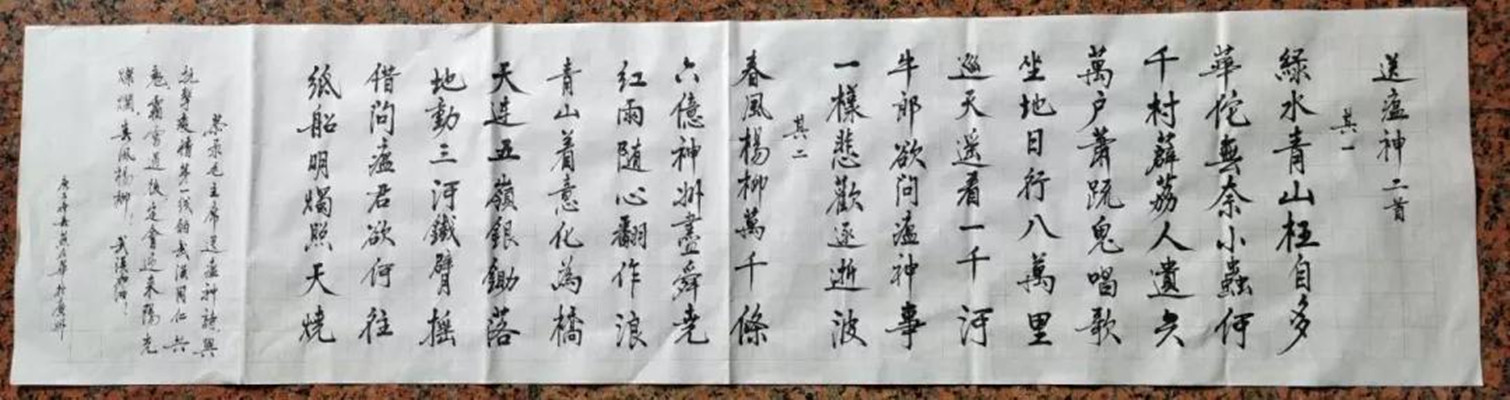 送瘟神二首
其一
綠水青山枉自多
華佗無奈小蟲何
千村薜荔人遺矢
萬户蕭疏鬼唱歌
坐地日行八萬里
巡天遥看一千河
牛郎欲問瘟神事
一樣悲歡逐逝波
其二
春風楊柳萬千條
六億神州盡舜堯
紅雨随心翻作浪
青山着意化為橋
天连五嶺銀鋤落
地動三河鐵臂摇
借問瘟君欲何往
紙船明燭照天燒
恭录毛主席送瘟神詩與
抗擊疫情第一线的武漢同仁共
勉霜雪過後定會迎来陽光
燦爛春風楊柳！武漢加油！
庚子仲春
於廣州